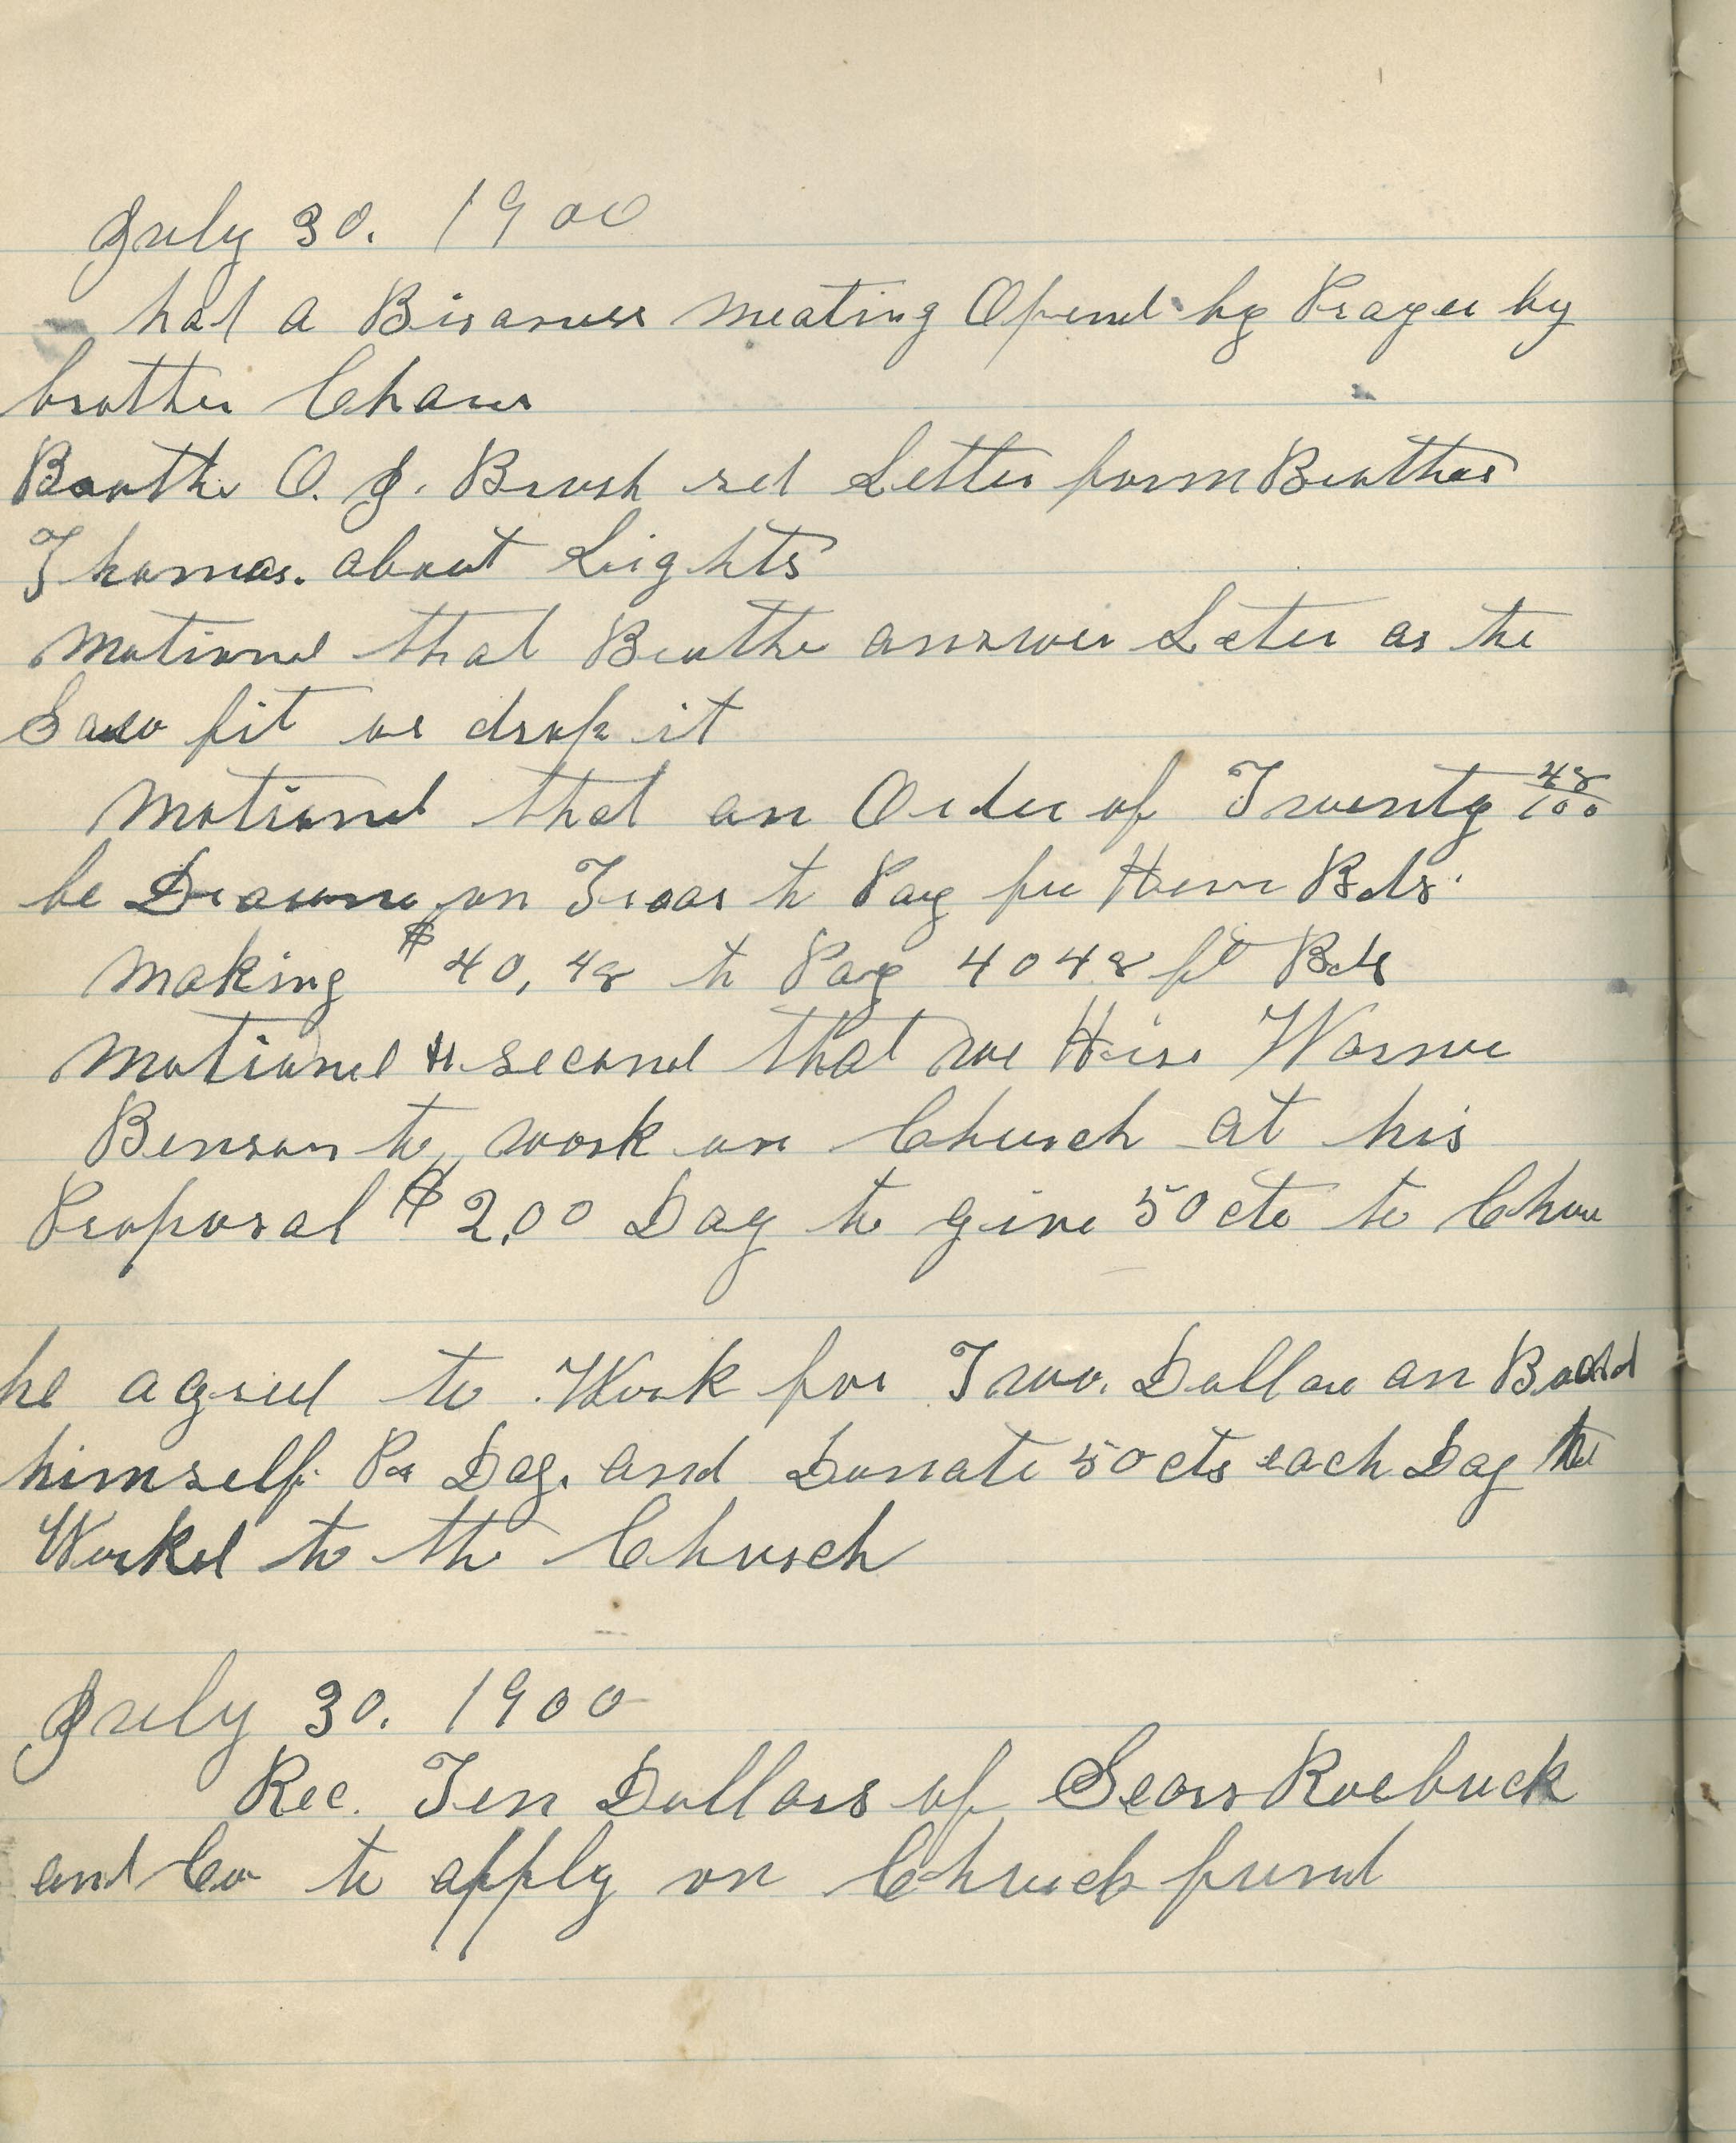 July 30. 1900
had a Bisaness meating Opend by Prayer by
brother Chase
Broothe O. J. Brush red Letter form Brother
Thomas. about Lights
Motiond that Brothe answer Leter as he
Saw fit or drop it
Motiond that an Order of Twenty 48/100
be Drawn on Treas to Pay for Bds.
Making $40,48 to Pay 4048 ft Bds
Motiond & second that we Hire Warne
Benson to work on Church at his
Proposal $2,00 Day to give 50 cts to Chur
he agred to Work for Two. Dollar an Board
himself. Per Day. and Donate 50 cts each Day he
Worked to the Church
July 30. 1900
Rec. Ten Dollars of Sears Roebuck
and Co to apply on Church fund